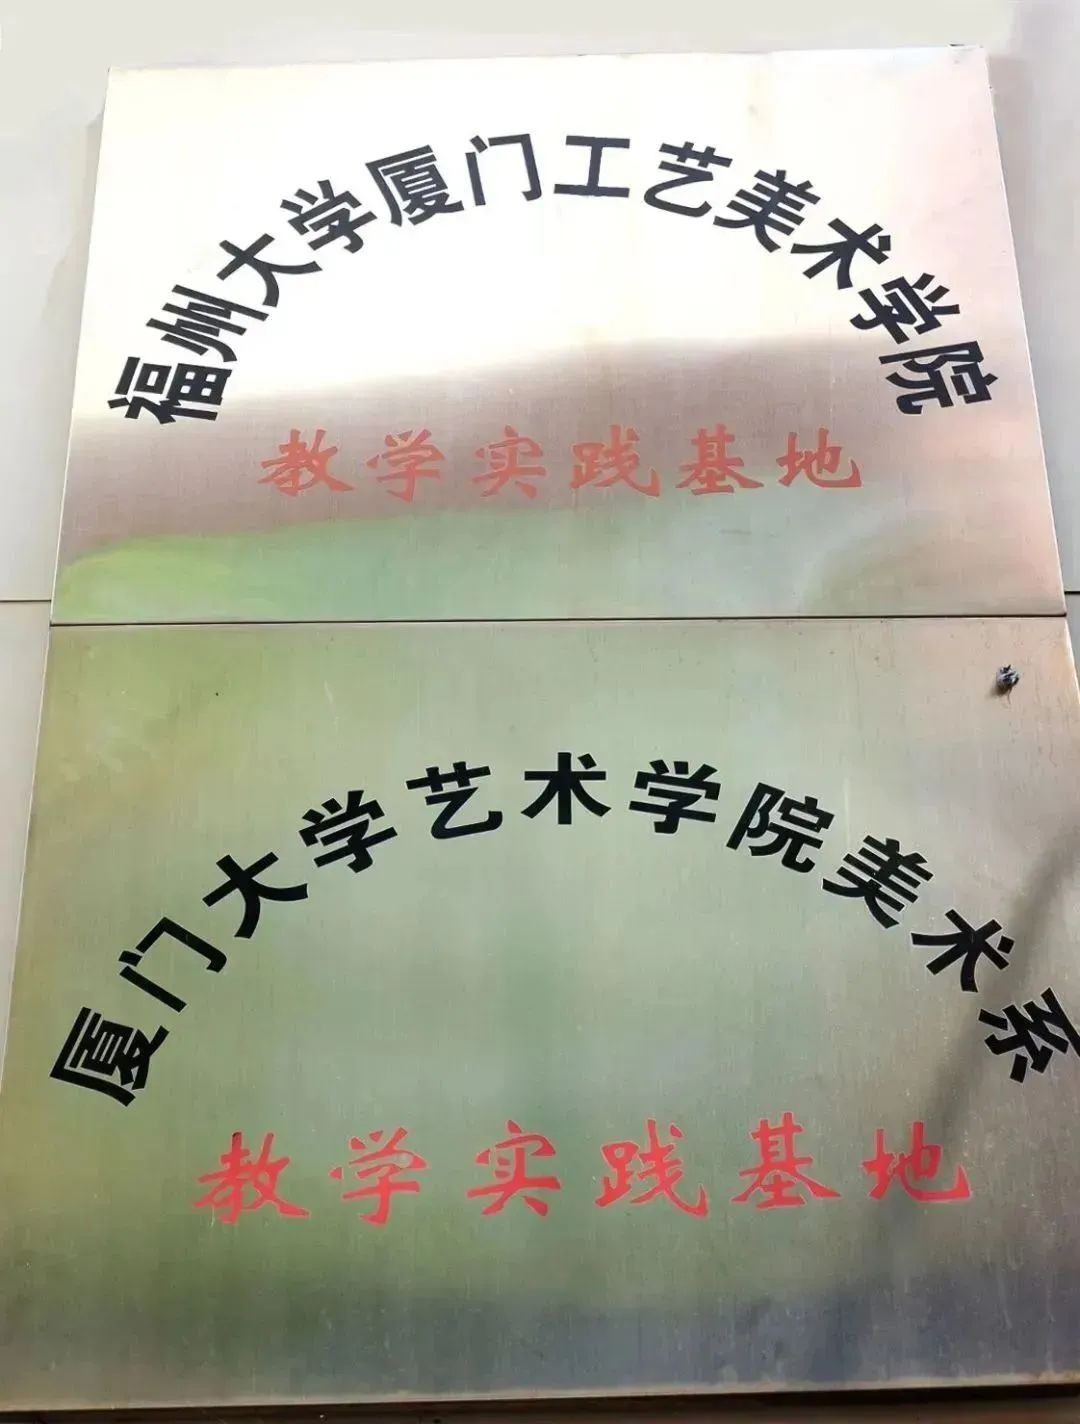 福州大学厦门工艺美术学院
教学实践基地
厦门大学艺术学院美术系
教学实践基地